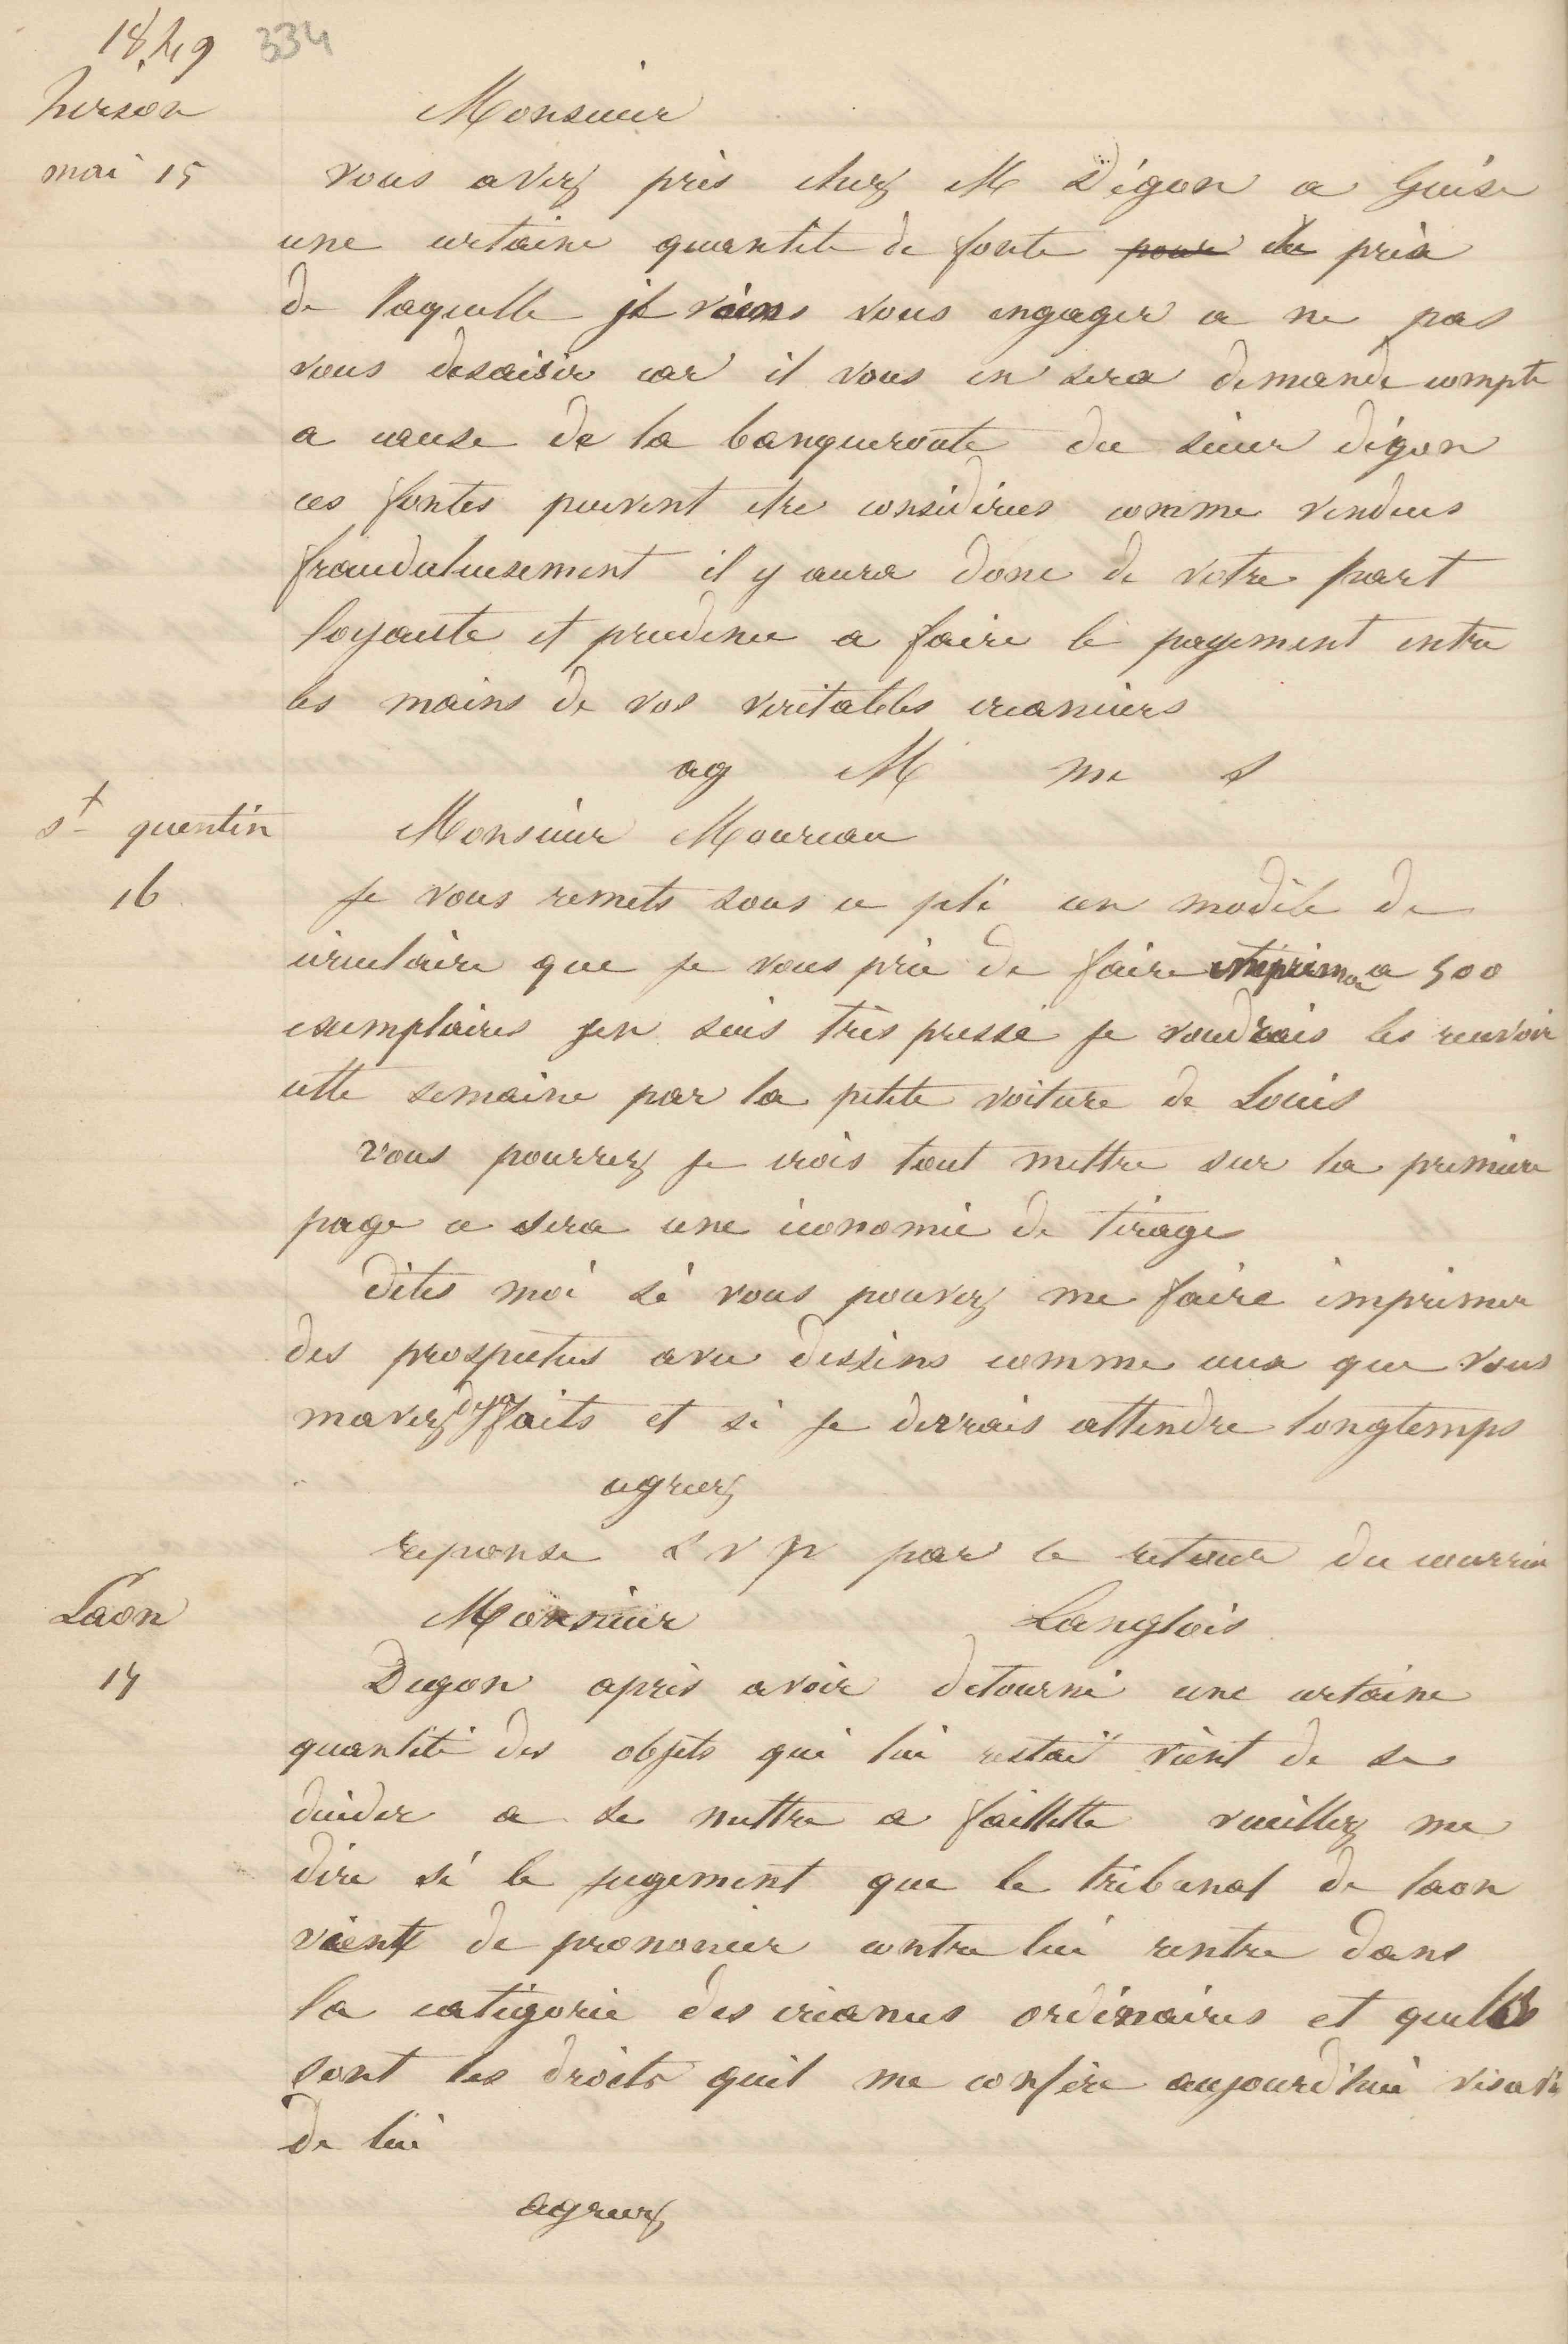 1849 334
hirson Monsieur
mai 15 vous avez pris chez M Dégon a Guise
une certaine quantite de fonte pour du prix
de laquelle je viens vous engager a ne pas
vous desaisir car il vous en sera demande compte
a cause de la banqueroute du sieur dégon
ces fontes peuvent etre considérées comme vendues
frauduleusement il y aura donc de votre part
loyaute et prudence a faire le payement entre
les mains de vos veritables creanciers
ag M me s
st quentin Monsieur Moureau
16 je vous remets sous ce pli un modèle de
circulaire que je vous prie de faire imprimer a 500
exemplaires jen suis très pressé je voudrais les recevoir
cette semaine par la petite voiture de Louis
vous pourrez je crois tout mettre sur la premiere
page ce sera une économie de tirage
dites moi si vous pouvez me faire imprimer
des prospectus avec dessins comme ceux que vous
mavez deja faits et si je devrais attendre longtemps
agreez
reponse s v p par le retour du courrier
Laon Monsieur Langlois
17 Degon après avoir detourné une certaine
quantité des objets qui lui restait vient de se
decider a se mettre a faillette veuillez me
dire si le jugement que le tribunal de laon
vient de prononcer contre lui rentre dans
la catégorie des créances ordinaires et quelles
sont les droits quil me confère aujourd'hui visavis
de lui
agreez